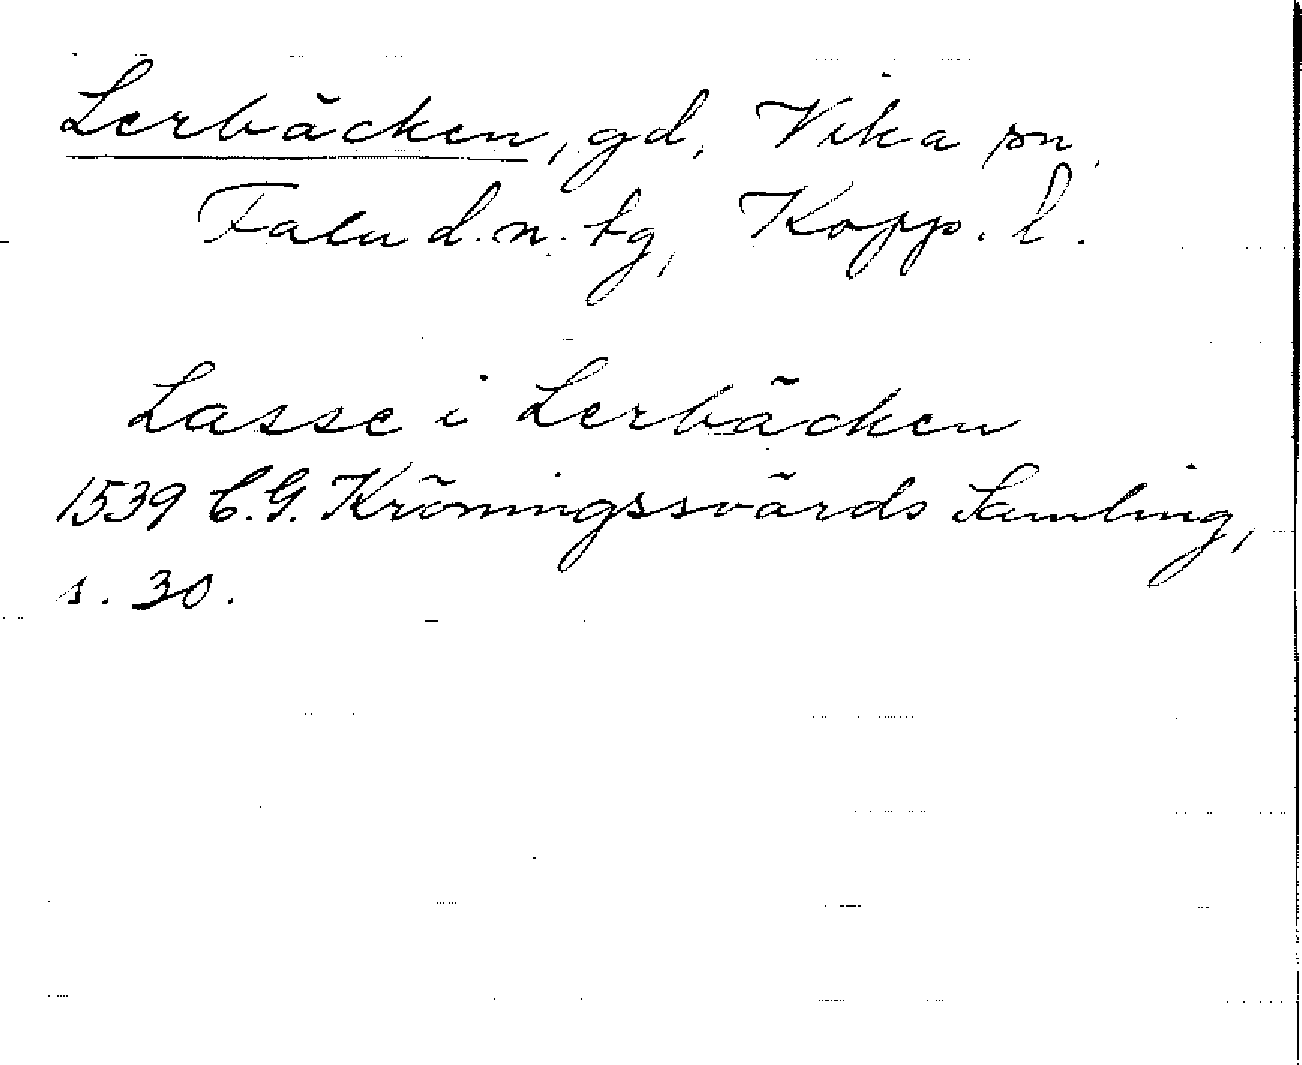 Lerbäcken, gd, Vika sn,
Falu d.n. tg, Kopp. l.
Lasse i Lerbäcken
1539 C.G. Kröningssvärds Samling,
s. 30.